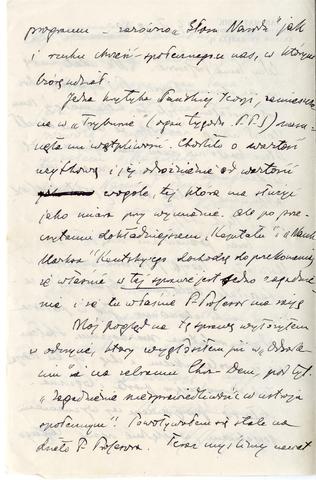 programu - zarówno „Słowa Narodu" jak
i ruchu chrześć-społecznego u nas, w którym
biorę udział.
Jedna krytyka Pańskiej teorji, zamieszczo
na w „Trybunie" (organ tygodn. P.P.S) nasu
nęła mi wątpliwości. Chodziło o wartość
użytkową i jej odróżnienie od wartości
wogóle, tej która ma służyć
jako miara przy wymianie. Ale po prze
czytaniu dokładniejszem „Kapitału" i „Nauk
Marksa" Kautsky'ego dochodzę do przekonania,
że właśnie w tej sprawie jest jedno zagadnie
nie i że to właśnie P. Profesor ma rację
Mój pogląd na tę sprawę wyłożyłem
w odczycie, który wygłosiłem już w
i na zebraniu Chrz-Dem, pod tyt.
„Zagadnienie niesprawiedliwości w ustroju
społecznym". Powoływałem się stale na
dzieło P. Profesora. Teraz myślimy nawet